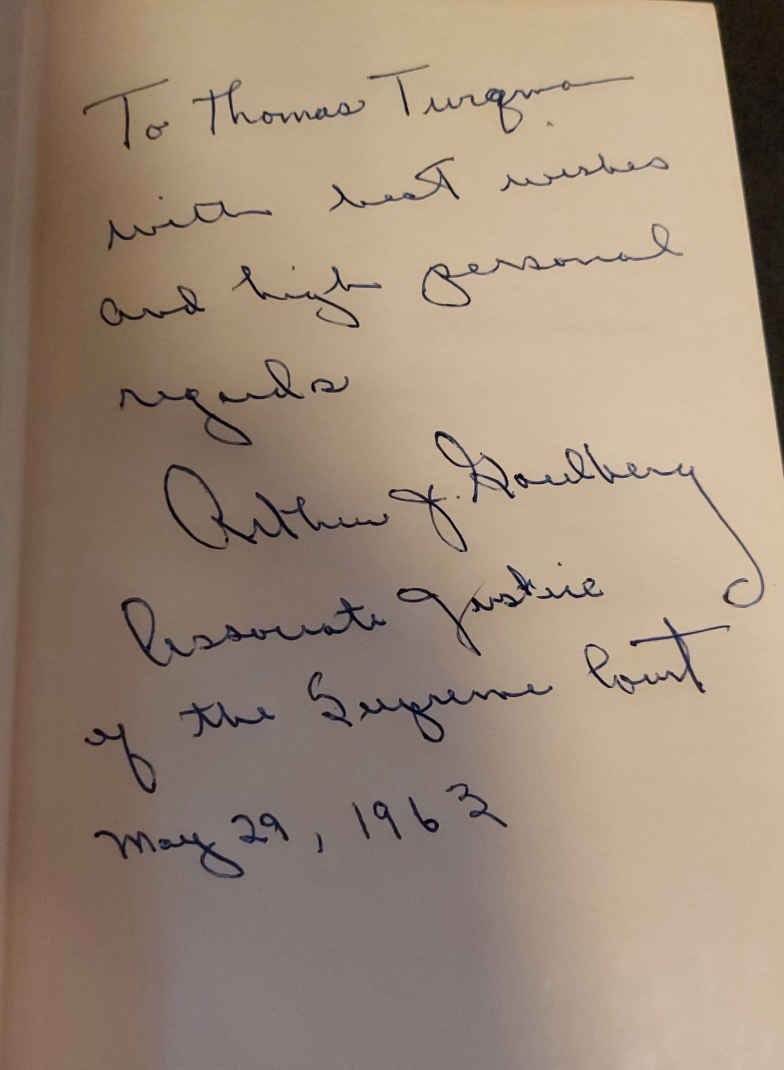 To Thomas
with best wishes
and high personal
regards
Arthur J. Goldberg
Associate Justice
of the Supreme Court
May 29, 1963